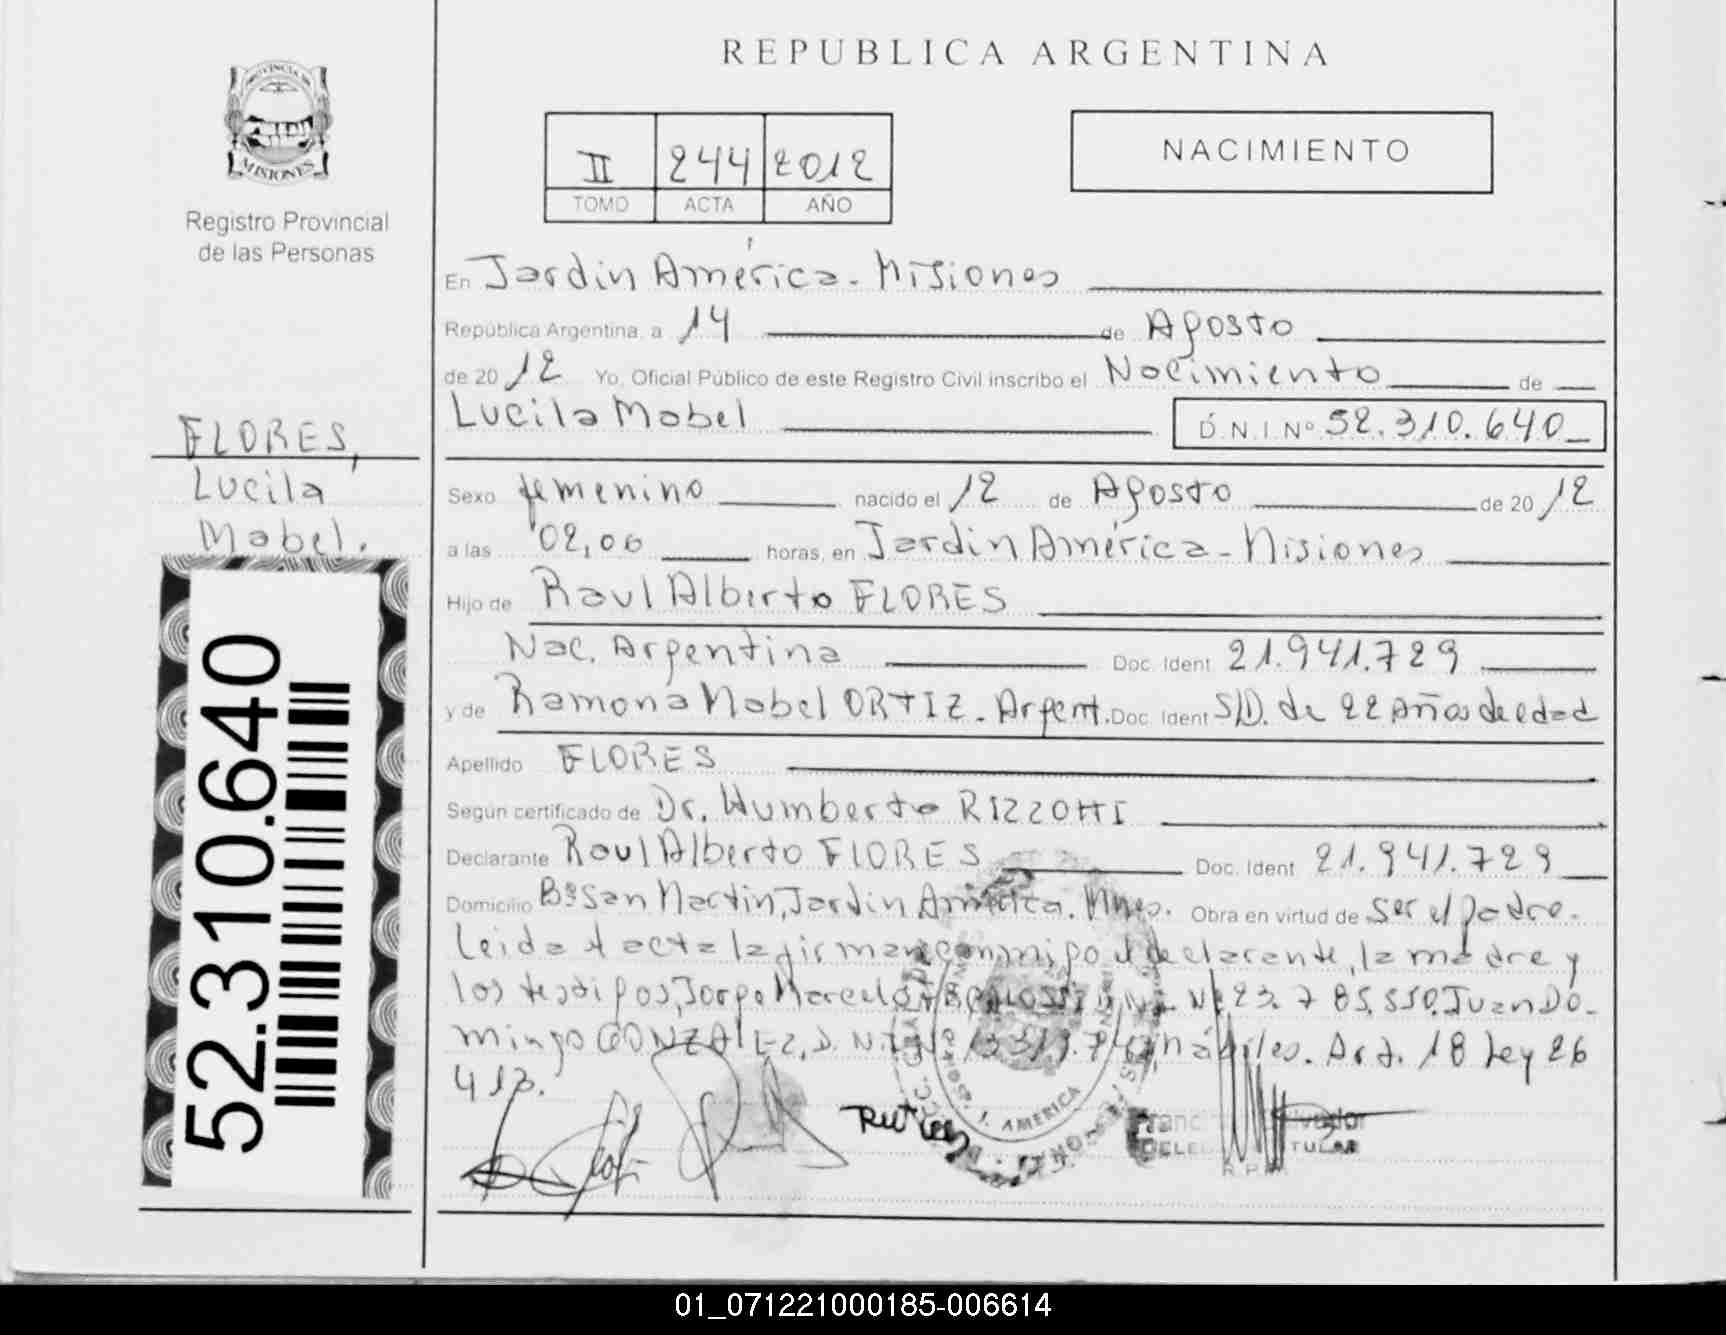 REPUBLICA ARGENTINA
PROVINCIA DE
MISIONES
Registro Provincial
de las Personas
II 244 2012
TOMO ACTA AÑO
NACIMIENTO
En Jardin América - Misiones
República Argentina, a 14 de Agosto
de 2012 Yo, Oficial Público de este Registro Civil inscribo el Nacimiento de
Lucila Mabel D.N.I Nº 52.310.640
FLORES,
Lucila
Mabel.
Sexo femenino nacido el 12 de Agosto de 2012
a las 02,00 horas, en Jardin América - Misiones
Hijo de Raul Alberto FLORES
Nac. Argentina Doc. Ident 21.941.729
y de Ramona Mabel ORTIZ. Argent. Doc. Ident S/D. de 22 Años de edad
Apellido FLORES
Según certificado de Dr. Humberto RIZZOTTI
Declarante Raul Alberto FLORES Doc. Ident 21.941.729
Domicilio Bº San Martin, Jardin América. Mnes. Obra en virtud de ser el padre.
Leida el acta la firman conmigo el declarante, la madre y
los testigos, Jorge Marcelo Nº 23.785.550, Juan Do-
mingo GONZALEZ, D.N.I. Nº hábiles. Art. 18 Ley 26
413.
J. AMERICA
R.P.P.
52.310.640
01_071221000185-006614